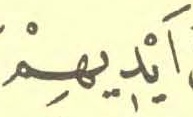 اَيْدِيهِمْ